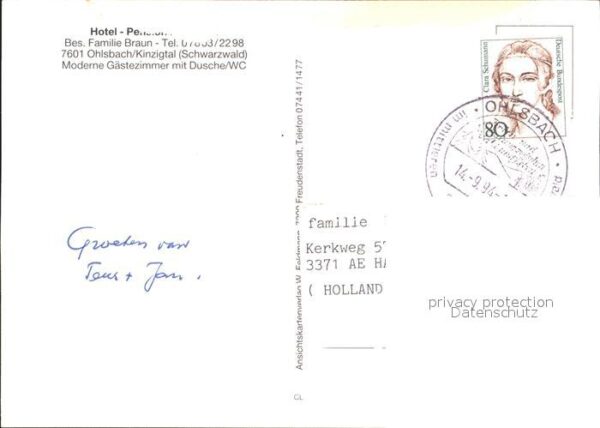 Hotel - Pension
Bes. Familie Braun - Tel. 07803/2298
7601 Ohlsbach/Kinzigtal (Schwarzwald)
Moderne Gästezimmer mit Dusche/WC
Groeten van
Teus + Jan.
Ansichtskartenverlag W. Feldmann, Freudenstadt, Telefon 07441/1477
GL
Clara Schumann
Deutsche Bundespost
80
OHLSBACH
im mittleren
14.-9.94
familie
Kerkweg 57
3371 AE HA
( HOLLAND
privacy protection
Datenschutz